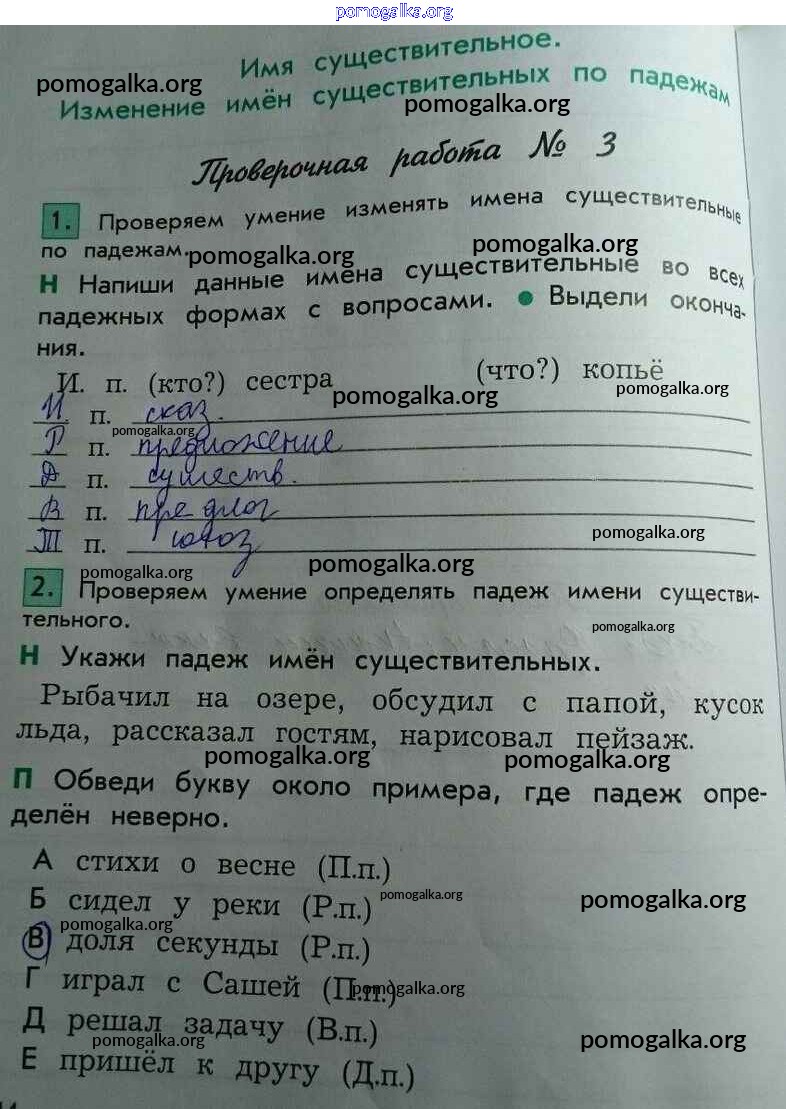 pomogalka.org
Имя существительное.
pomogalka.org
Изменение имён существительных по падежам
pomogalka.org
Проверочная работа № 3
1. Проверяем умение изменять имена существительные
по падежам.
pomogalka.org
pomogalka.org
Н Напиши данные имена существительные во всех
падежных формах с вопросами. ● Выдели оконча-
ния.
И. п. (кто?) сестра (что?) копьё
pomogalka.org
pomogalka.org
И п. сказ.
pomogalka.org
Р п. предложение
Д п. существ.
В п. предлог
Т п. союз
pomogalka.org
pomogalka.org
pomogalka.org
2. Проверяем умение определять падеж имени существи-
тельного.
pomogalka.org
Н Укажи падеж имён существительных.
Рыбачил на озере, обсудил с папой, кусок
льда, рассказал гостям, нарисовал пейзаж.
pomogalka.org
pomogalka.org
П Обведи букву около примера, где падеж опре-
делён неверно.
А стихи о весне (П.п.)
Б сидел у реки (Р.п.)
pomogalka.org
pomogalka.org
pomogalka.org
В доля секунды (Р.п.)
Г играл с Сашей (П.п.)
pomogalka.org
Д решал задачу (В.п.)
pomogalka.org
pomogalka.org
Е пришёл к другу (Д.п.)